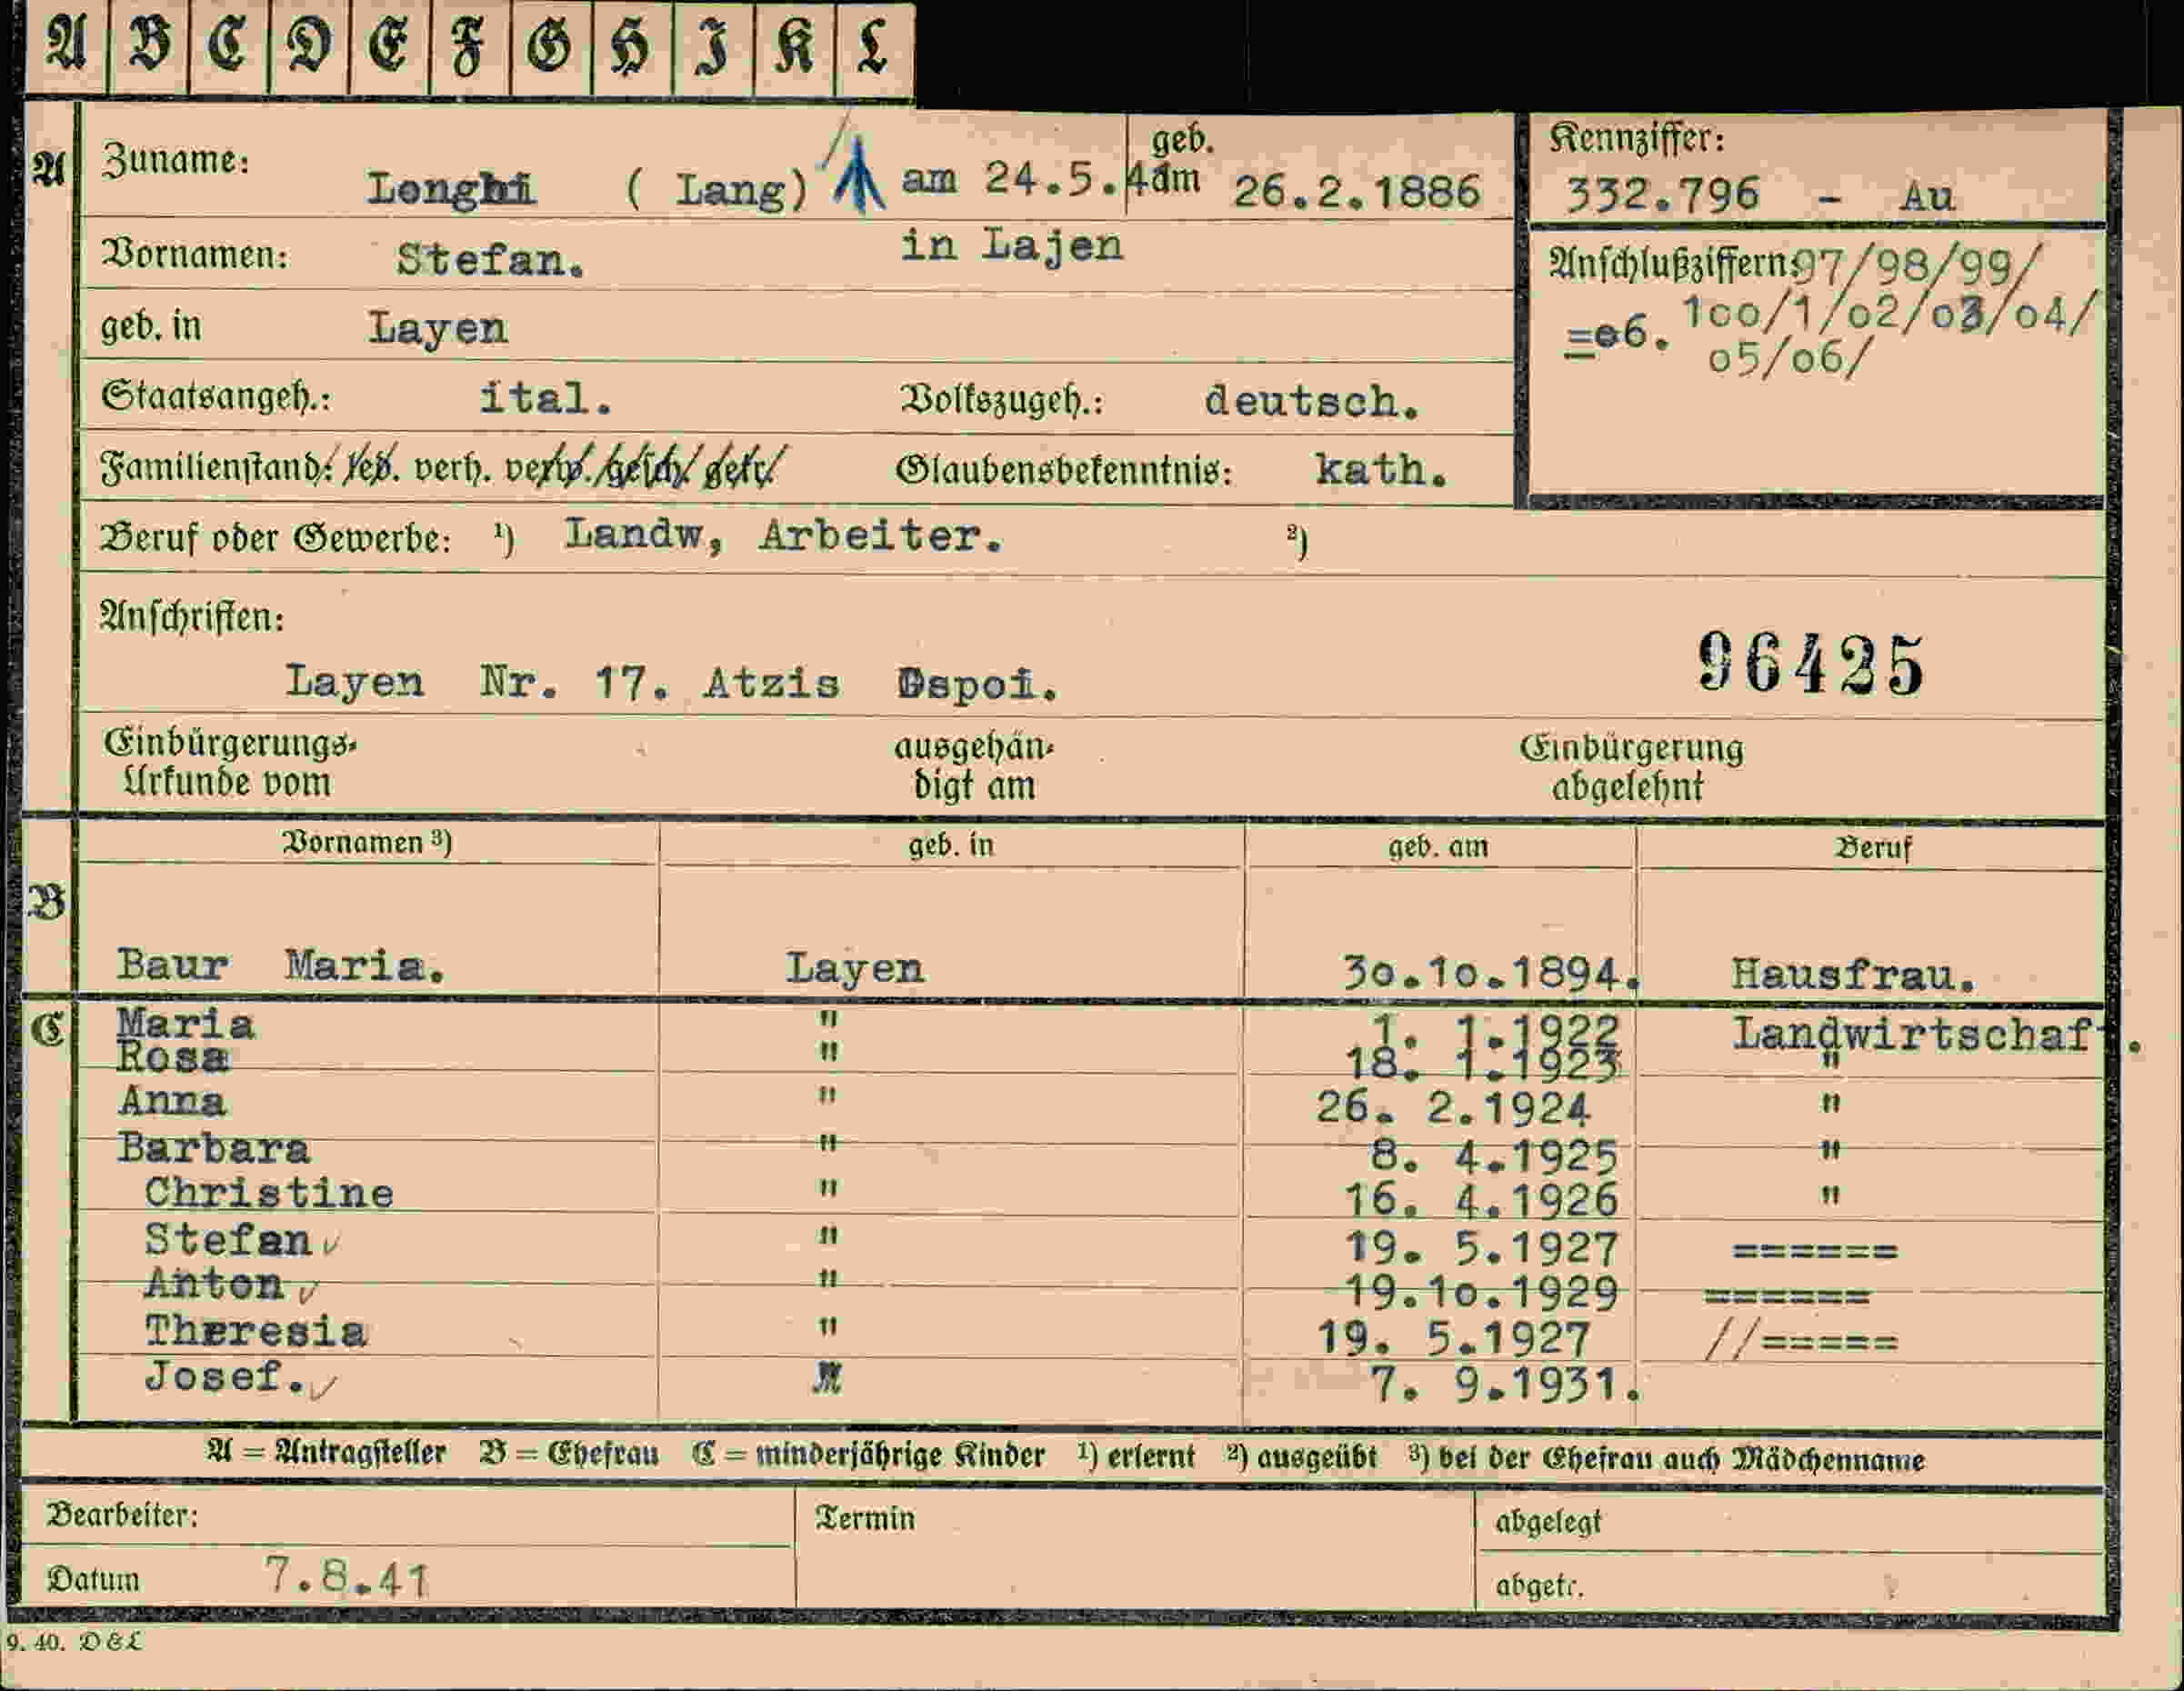 A B C D E F G H I K L
A Zuname: Longhi ( Lang) am 24.5.4 geb. am 26.2.1886
Kennziffer:
332.796 - Au
Vornamen: Stefan. in Lajen
Anschlußziffern: 97/98/99/
=06. 100/1/02/03/04/
05/06/
geb. in Layen
Staatsangeh.: ital. Volkszugeh.: deutsch.
Familienstand: led. verh. verw. gesch. getr. Glaubensbekenntnis: kath.
Beruf oder Gewerbe: ¹) Landw, Arbeiter. ²)
Anschriften:
Layen Nr. 17. Atzis Dspoi.
96425
Einbürgerungs- ausgehän- Einbürgerung
Urkunde vom digt am abgelehnt
Vornamen ³) geb. in geb. am Beruf
B
Baur Maria. Layen 30.10.1894. Hausfrau.
C Maria " 1. 1.1922 Landwirtschaf.
Rosa " 18. 1.1923 "
Anna " 26. 2.1924 "
Barbara " 8. 4.1925 "
Christine " 16. 4.1926 "
Stefan " 19. 5.1927 ======
Anton " 19.10.1929 ======
Theresia " 19. 5.1927 //=====
Josef. " 7. 9.1931.
A = Antragsteller B = Ehefrau C = minderjährige Kinder ¹) erlernt ²) ausgeübt ³) bei der Ehefrau auch Mädchenname
Bearbeiter: Termin abgelegt
Datum 7.8.41 abgetr.
9. 40. D & L